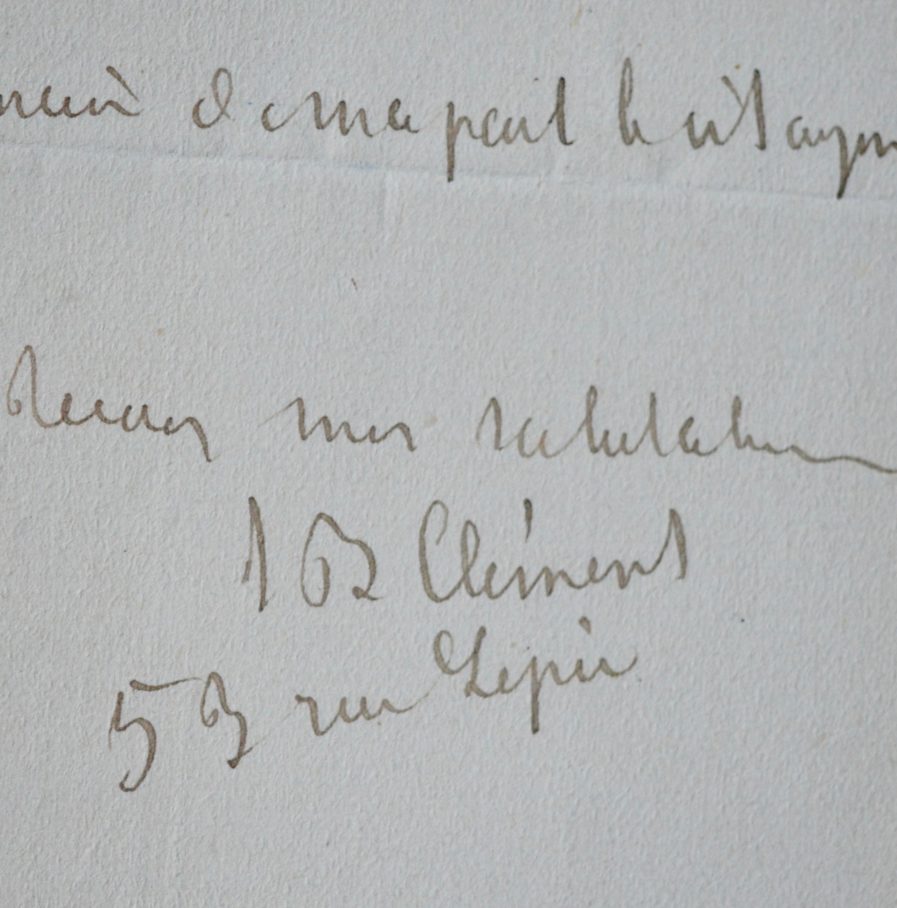 de ma part le citoyen
Recevez mes salutations
J B Clément
53 rue Lepic